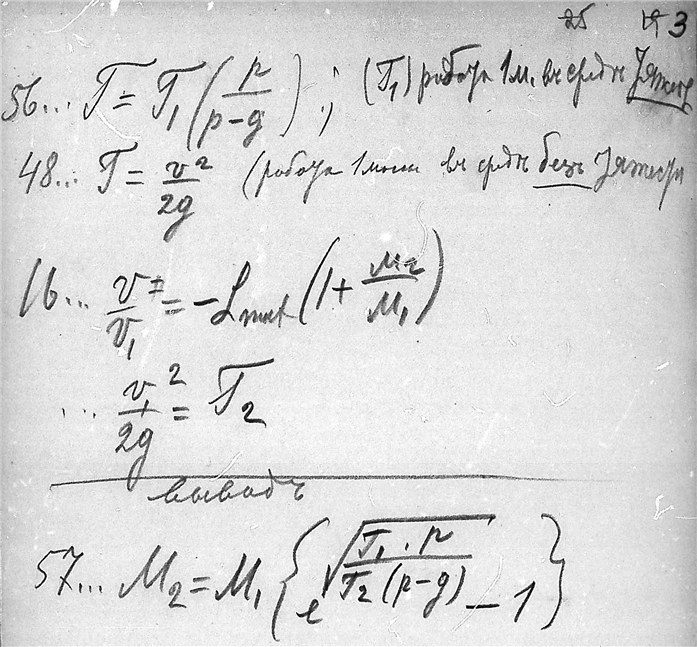 25 № 3
56... T = T₁ (p/(p-g)); (T₁) работа 1 м. въ средѣ тяжести
48... T = v²/2g (работа 1 массы въ средѣ безъ тяжести
16... v/v₁ = -L nat (1 + M₂/M₁)
... v₁²/2g = T₂
выводъ
57... M₂ = M₁ { e^√(T₁.p/T₂(p-g)) - 1 }